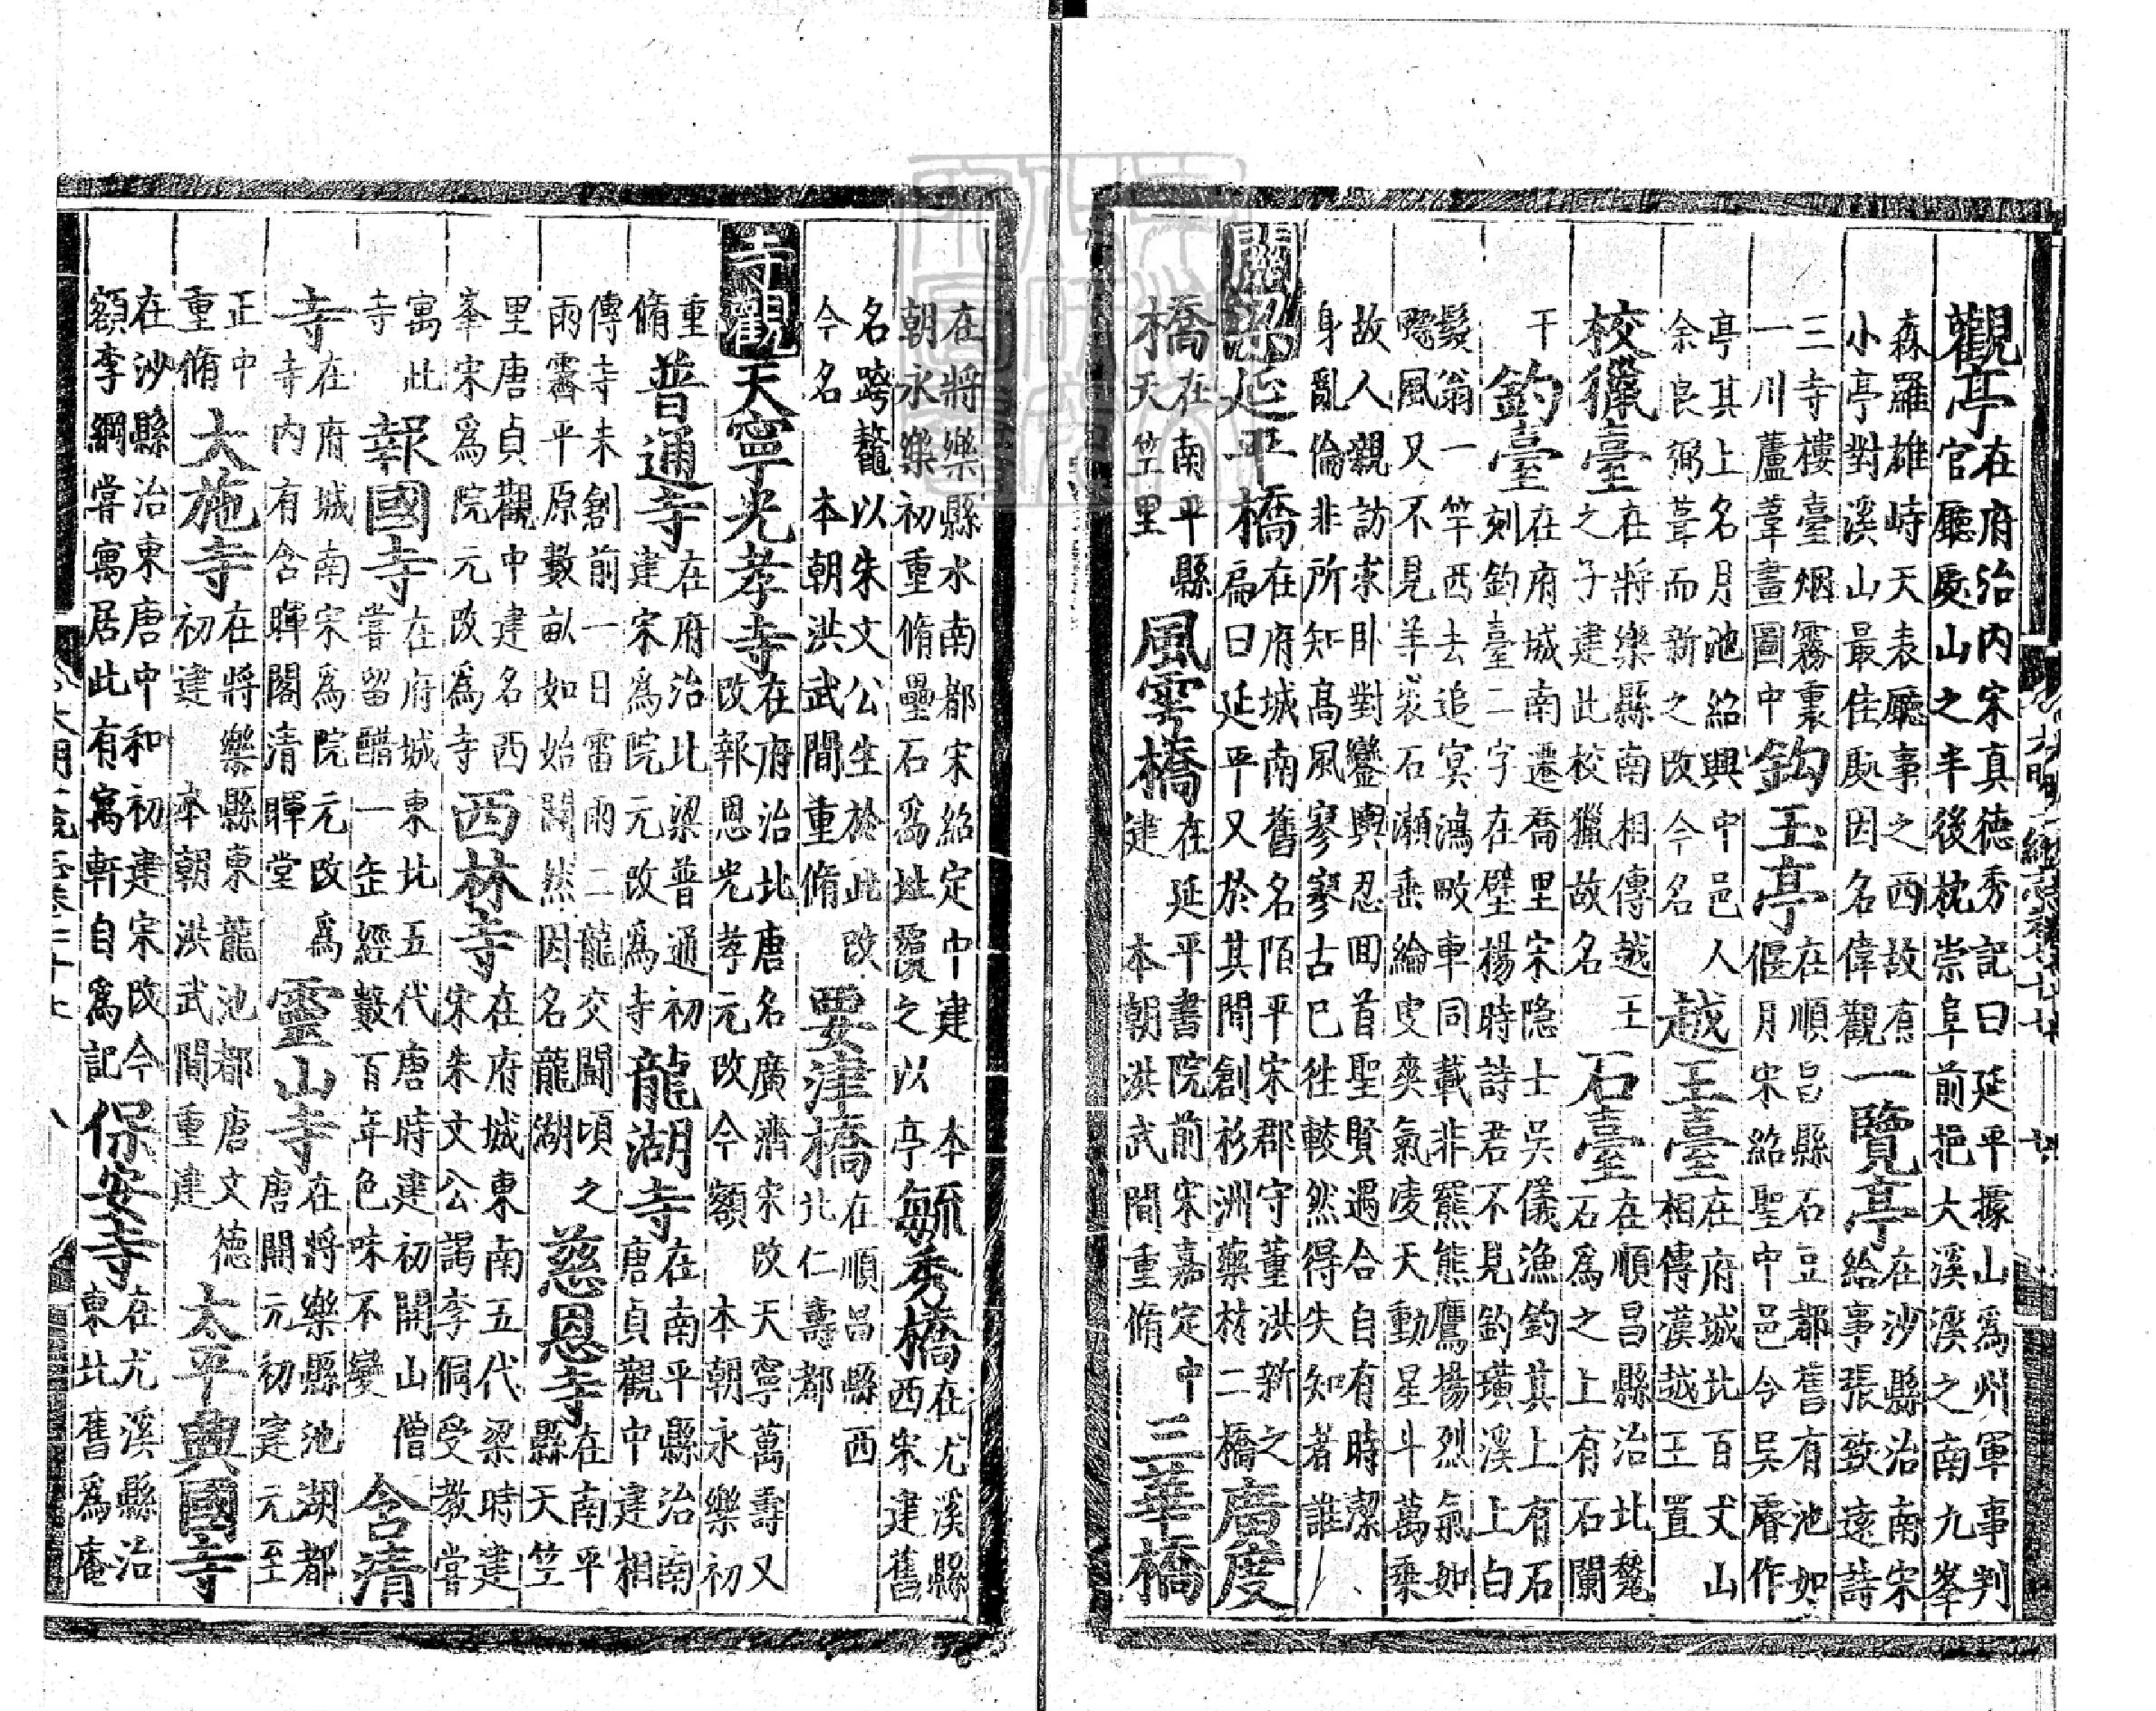 觀亭在府治内宋真德秀記曰延平據山爲州軍事判
官廳處山之半後枕崇阜前挹大溪溪之南九峯
森羅雄峙天表廳事之西故有一覽亭在沙縣治南宋
小亭對溪山最佳處因名偉觀給事張致遠詩
三寺樓臺烟霧裏鈎玉亭在順昌縣石豆都舊有池如
一川蘆葦畫圖中偃月宋紹聖中邑令吳睿作
亭其上名月池紹興中邑人越王臺在府城北百丈山
余良弼葺而新之改今名相傳漢越王置
校獵臺在將樂縣南相傳越王石臺在順昌縣治北甃
之子建此校獵故名石爲之上有石闌
干釣臺在府城南遷喬里宋隐士吳儀漁釣其上有石
刻釣臺二字在壁楊時詩君不見釣璜溪上白
髮翁一竿西去追冥鴻畋車同載非羆熊鷹揚烈氣如
飈風又不見羊裘石瀬垂綸叟奕氣凌天動星斗萬乗
故人親訪求卧對鑾輿忍回首聖賢遇合自有時潔
身亂倫非所知高風寥寥古已徃較然得失知著誰
關梁延平橋在府城南舊名陌平宋郡守董洪新之
扁曰延平又於其間創衫洲藥材二橋廣度
橋在南平縣風雩橋在延平書院前宋嘉定中三華橋
天竺里建本朝洪武間重脩
在將樂縣水南都宋紹定中建本毓秀橋在尤溪縣
朝永樂初重脩壘石爲址覆之以亭西宋建舊
名跨鼇以朱文公生於此改要津橋在順昌縣西
今名本朝洪武間重脩北仁壽都
寺觀天寧光孝寺在府治北唐名廣濟宋改天寧萬壽又
改報恩光孝元改今額本朝永樂初
重普通寺在府治北梁普通初龍湖寺在南平縣治南
脩建宋爲院元改爲寺唐貞觀中建相
傳寺未創前一日雷雨二龍交闘頃之慈恩寺在南平
雨霽平原數畝如始闢然因名龍湖縣天竺
里唐貞觀中建名西西林寺在府城東南五代梁時建
峯宋爲院元改爲寺宋朱文公謁李侗受教嘗
寓此報國寺在府城東北五代唐時建初開山僧含清
寺嘗留醋一缶經數百年色味不變
寺在府城南宋爲院元改爲靈山寺在將樂縣池湖都
寺寺内有含暉閣清暉堂唐開元初建元至
正中大施寺在將樂縣東龍池都唐文德太平興國寺
重脩初建本朝洪武間重建
在沙縣治東唐中和初建宋改今保安寺在尤溪縣治
額李綱嘗寓居此有寓軒自爲記東北舊爲庵